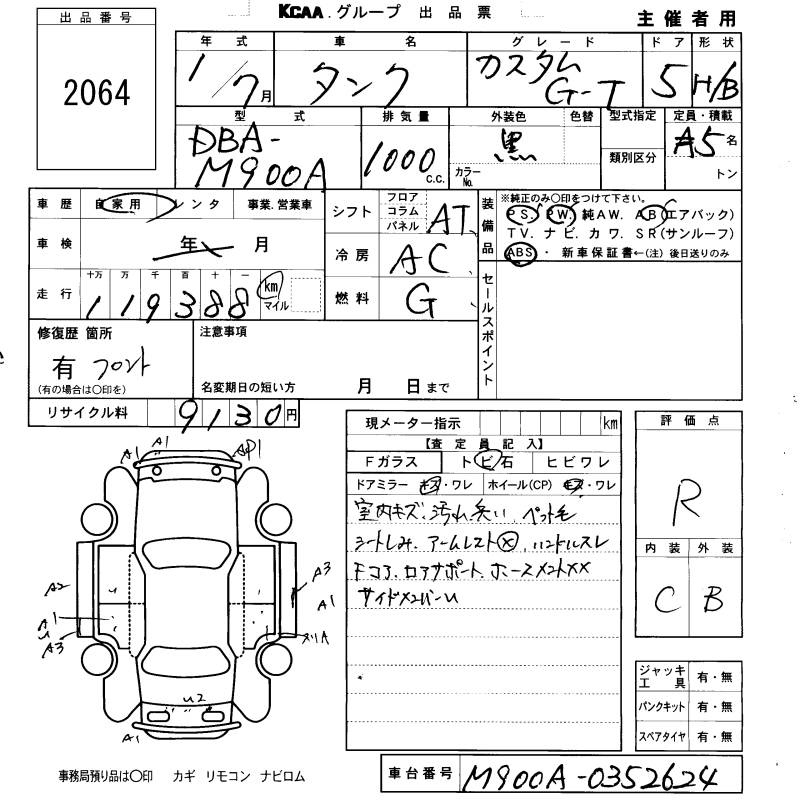 KCAA.グループ 出品票
主催者用
出品番号
2064
年式 車名 グレード ドア 形状
1/7月 タンク カスタム G-T 5 H/B
型式 排気量 外装色 色替 型式指定 定員・積載
DBA-M900A 1000 c.c. 黒 カラーNo. 類別区分 5名
トン
車歴 自家用 レンタ 事業.営業車
車検 年 月
走行 十万 万 千 百 十 一
119388 km マイル
シフト フロア コラム パネル AT
冷房 AC
燃料 G
装備品
※純正のみ○印をつけて下さい。
PS. PW. 純AW. AB(エアバック)
TV. ナビ. カワ. SR(サンルーフ)
ABS・ 新車保証書←(注) 後日送りのみ
セールスポイント
修復歴 箇所
有 フロント
(有の場合は○印を)
注意事項
名変期日の短い方 月 日まで
リサイクル料 9130円
現メーター指示 km
【査定員記入】
Fガラス トビ石 ヒビワレ
ドアミラー キズ・ワレ ホイール(CP) キズ・ワレ
室内キズ、汚れ、臭い、ペット毛
シートしみ、アームレスト×、ハンドルスレ
Fコア、ロアサポート、ホースメント××
サイドメンバーU
評価点
R
内装 外装
C B
ジャッキ工具 有・無
パンクキット 有・無
スペアタイヤ 有・無
A1 A1 A1
A2 U A3
A1 U A1
A3 U2
A1
事務局預り品は○印 カギ リモコン ナビロム
車台番号 M900A-0352624